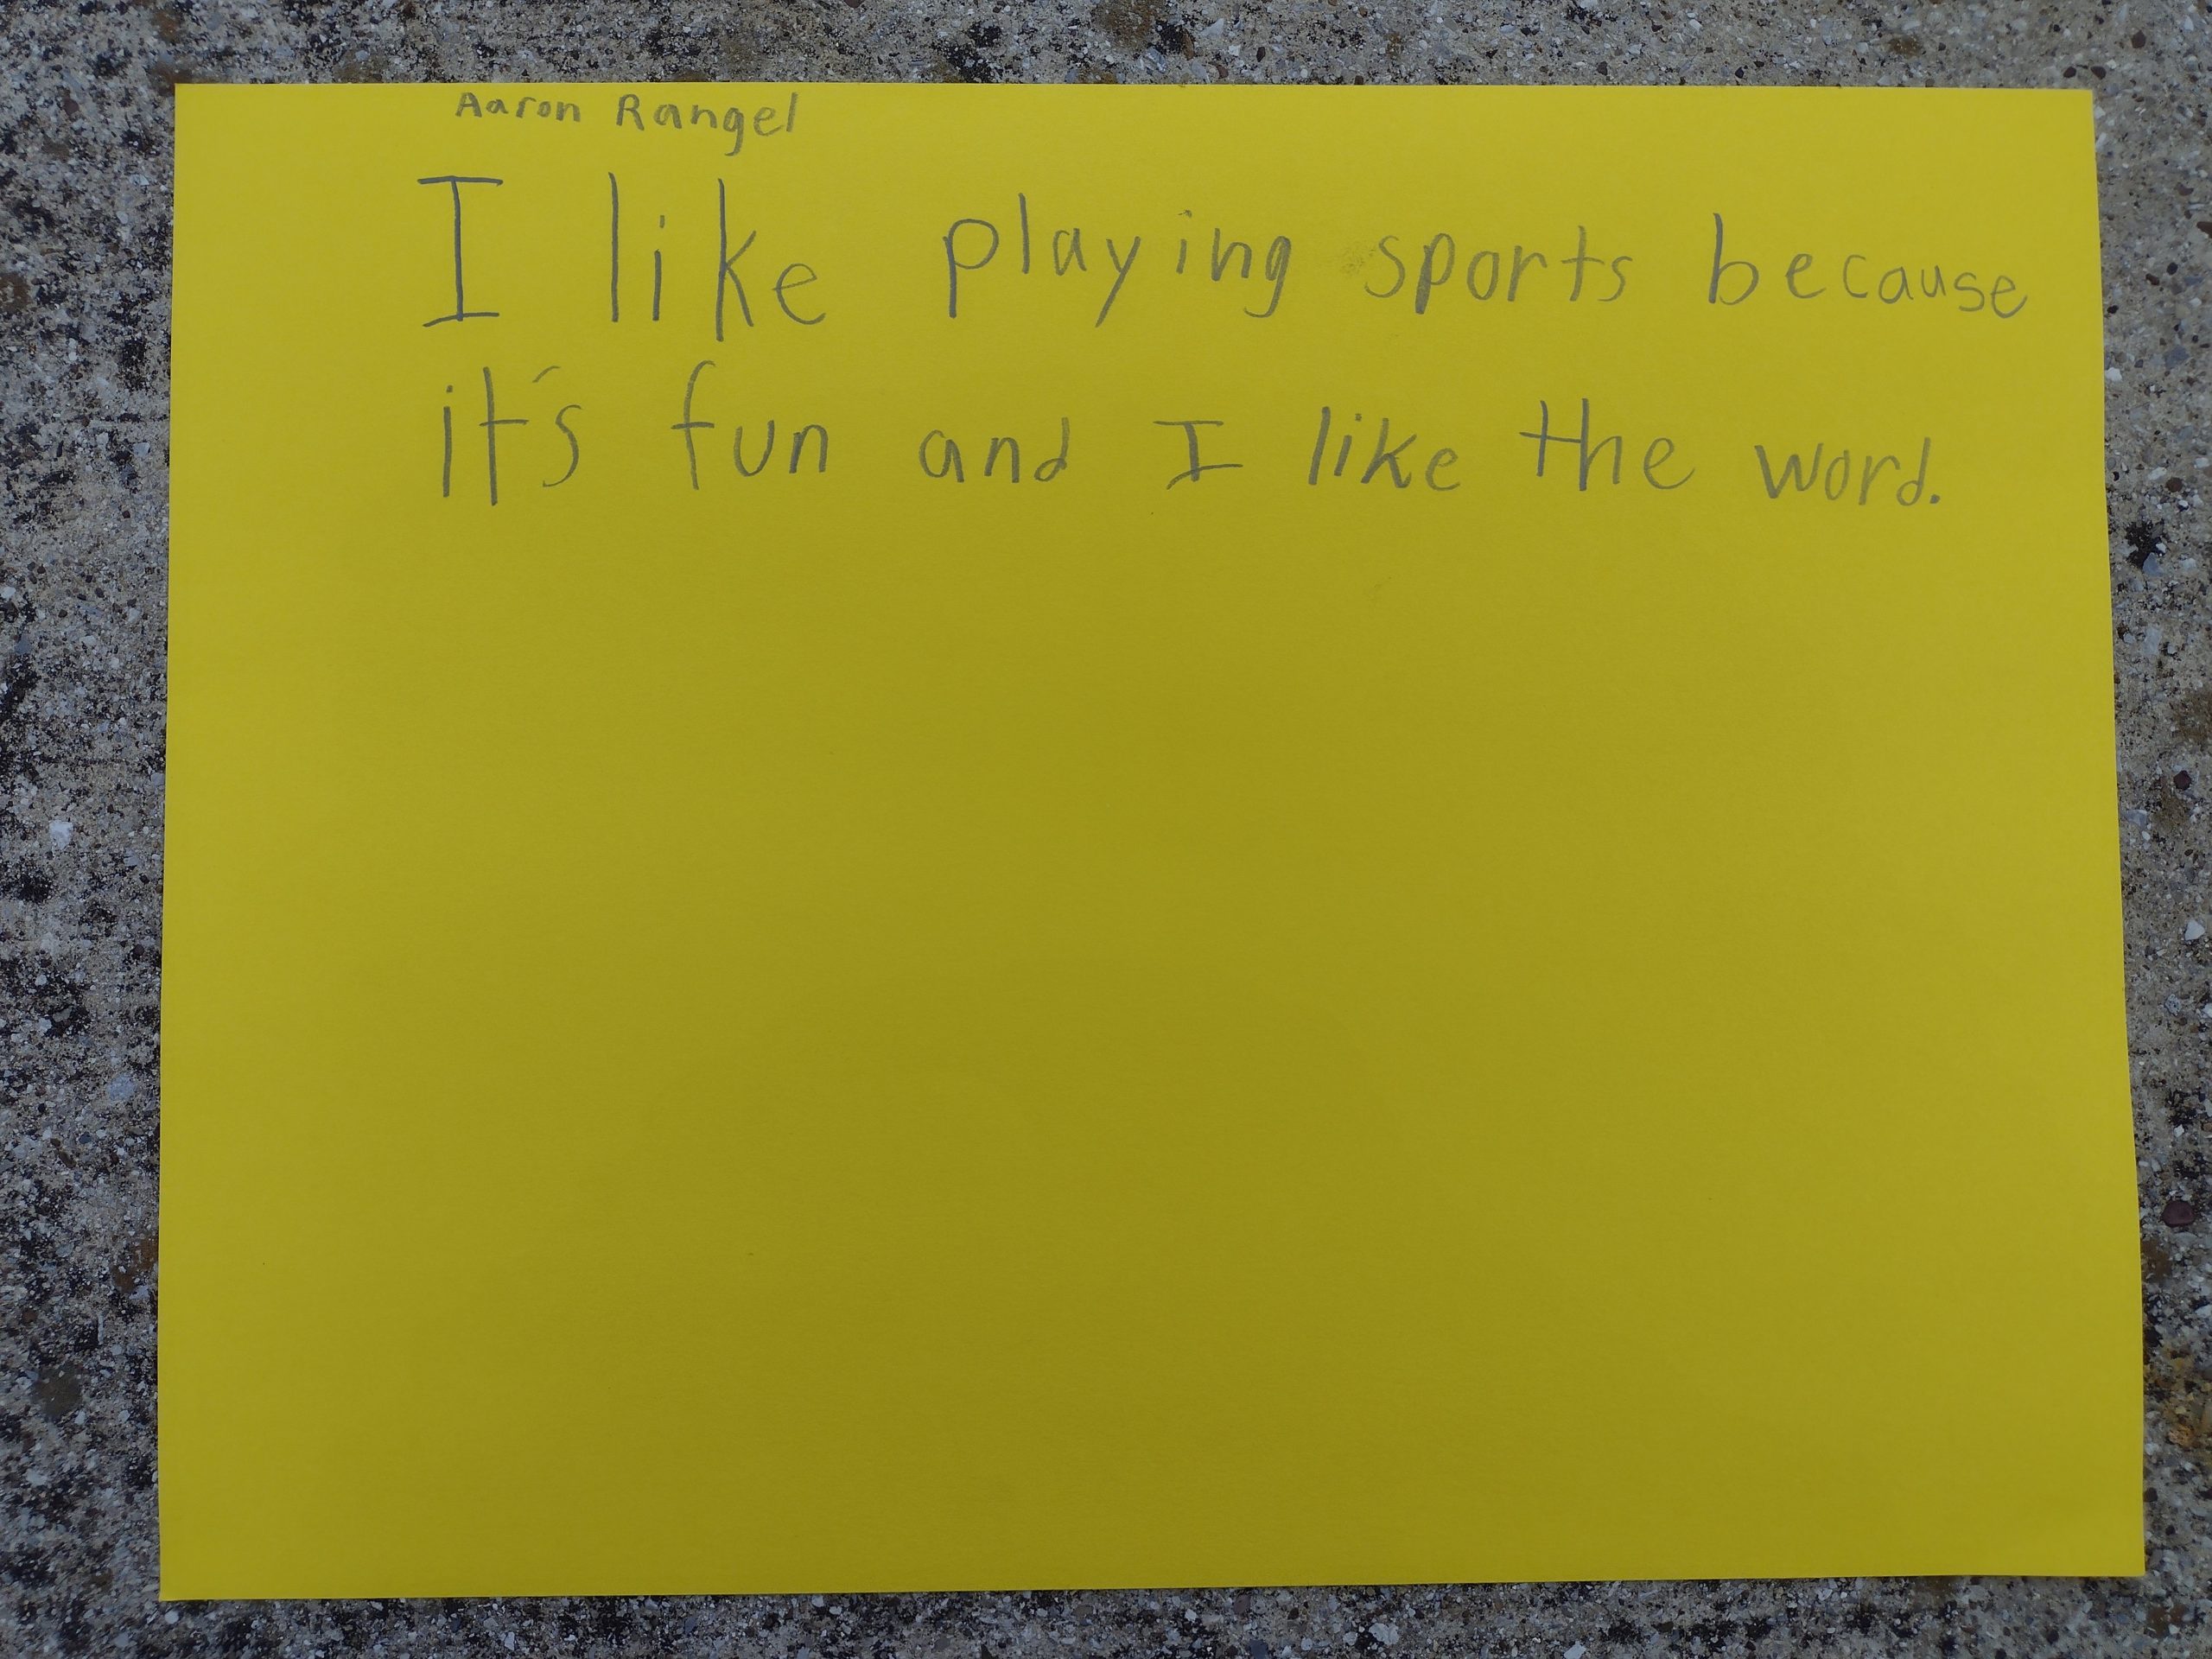 Aaron Rangel
I like playing sports because
it's fun and I like the word.